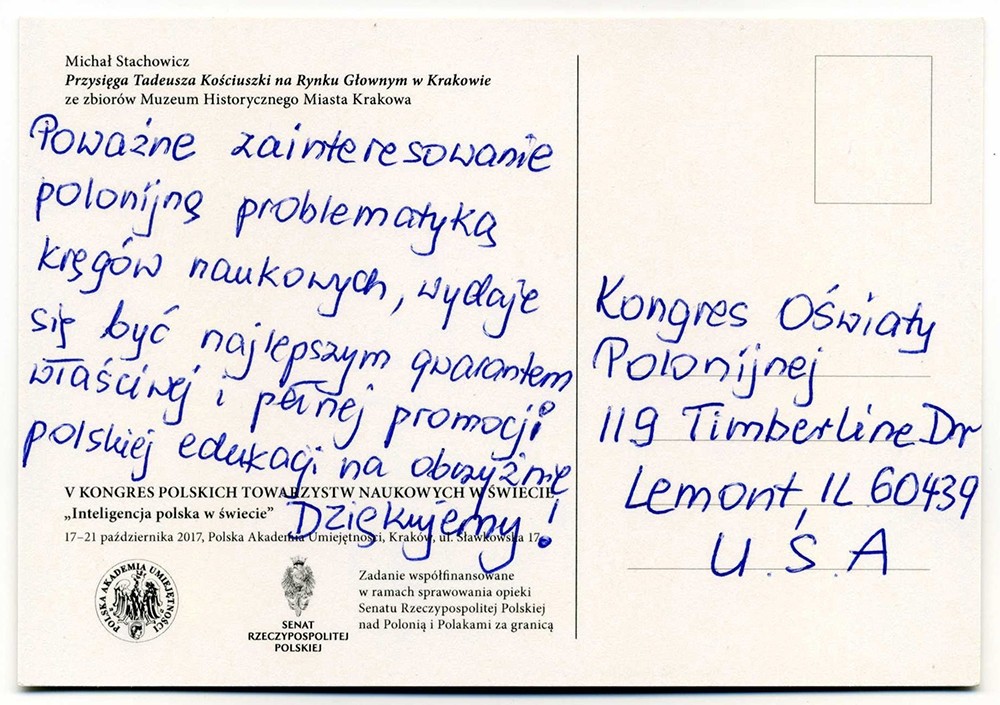 Michał Stachowicz
Przysięga Tadeusza Kościuszki na Rynku Głownym w Krakowie
ze zbiorów Muzeum Historycznego Miasta Krakowa
Poważne zainteresowanie
polonijną problematyką
kręgów naukowych, wydaje
się być najlepszym gwarantem
właściwej i pełnej promocji
polskiej edukacji na obczyźnie
Dziękujemy!
V KONGRES POLSKICH TOWARZYSTW NAUKOWYCH W ŚWIECIE
„Inteligencja polska w świecie”
17–21 października 2017, Polska Akademia Umiejętności, Kraków, ul. Sławkowska 17
POLSKA AKADEMIA UMIEJĘTNOŚCI
SENAT
RZECZYPOSPOLITEJ
POLSKIEJ
Zadanie współfinansowane
w ramach sprawowania opieki
Senatu Rzeczypospolitej Polskiej
nad Polonią i Polakami za granicą
Kongres Oświaty
Polonijnej
119 Timberline Dr
Lemont, IL 60439
U.S.A